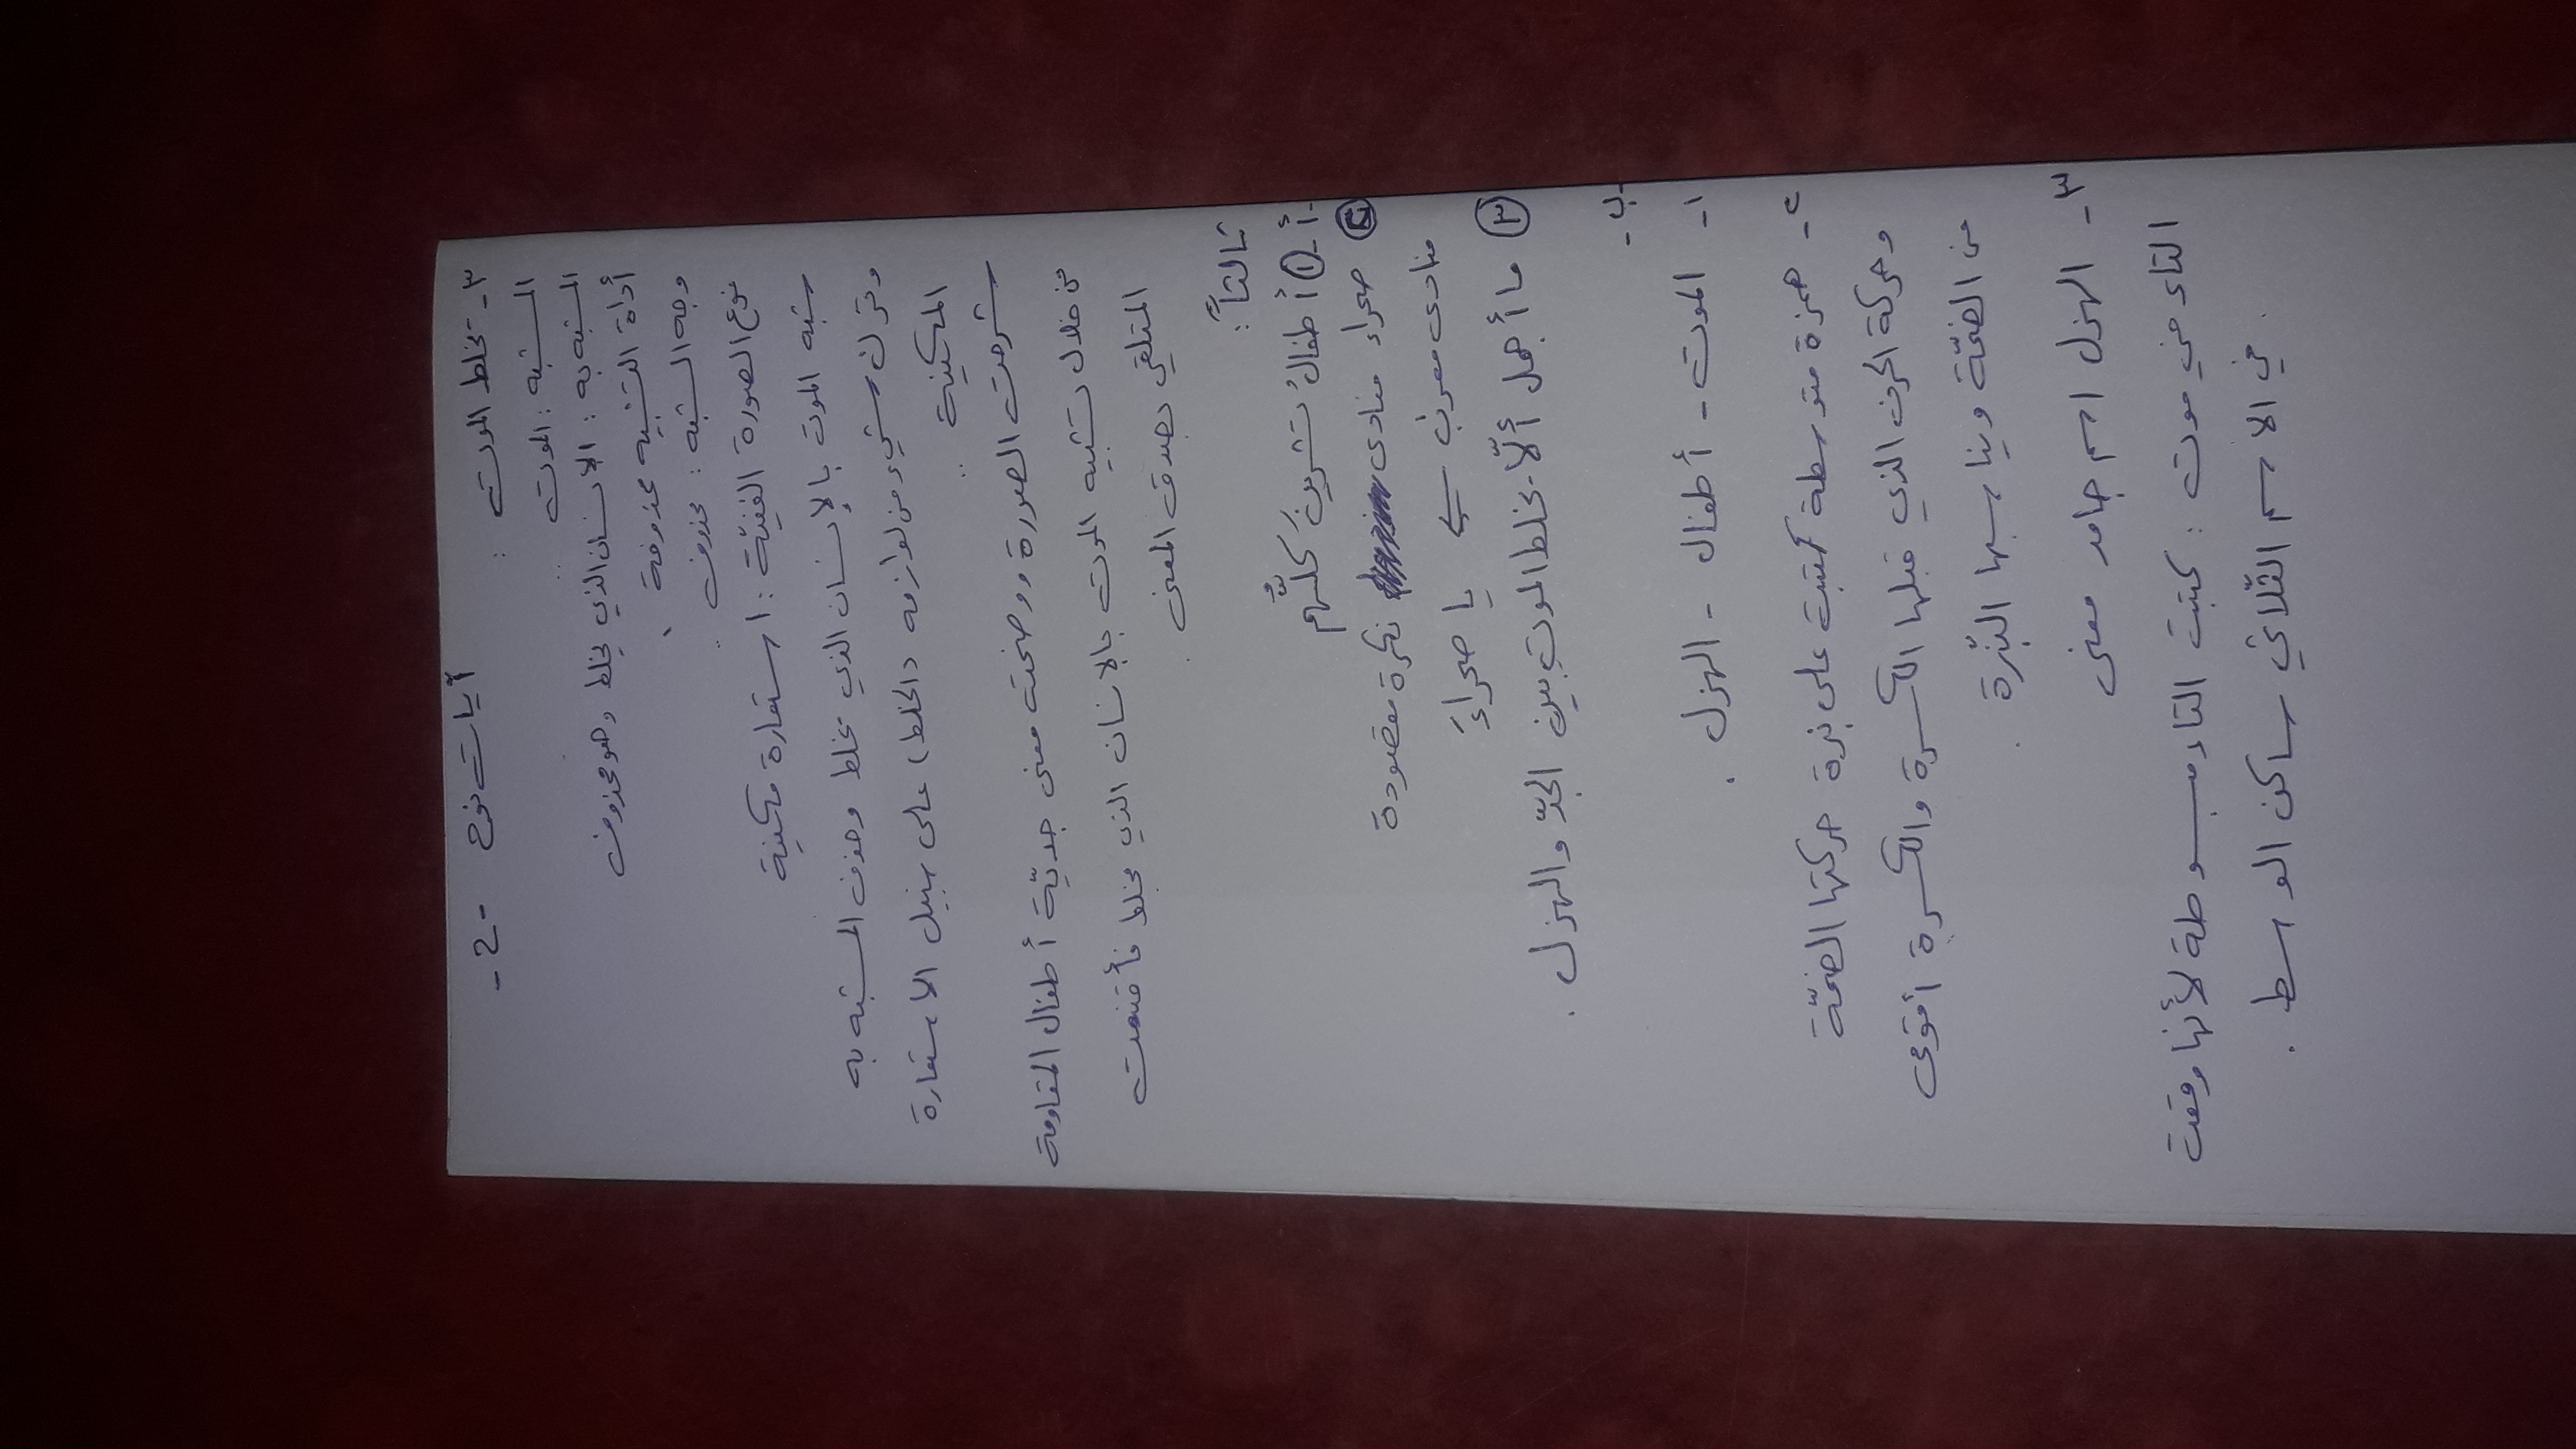 آيات نوح -2-
٣- تخلط الموت :
المشبه : الموت
المشبه به : الانسان الذي يخلط وهو محذوف
أداة التشبيه محذوفة
وجه الشبه : محذوف
نوع الصورة الفنيّة : استعارة مكنية
شبه الموت بالإنسان الذي تخلط وحذف المشبه به
وترك شيء من لوازمه (الخلط) على سبيل الاستعارة
المكنية
شرحت الصورة ووضحت معنى جديّة أطفال المقاومة
من خلال تشبيه الموت بالانسان الذي يخلط فأقنعت
المتلقي بصدق المعنى .
ثالثاً :
-أ- ① أطفالُ تشرينَ كلهُّم
② صحراء منادى نكرة مقصودة
منادى معرب ← يا صحراءَ
③ ما أجمل ألّا تخلط الموت بين الجدّ والهزل .
-ب-
١- الموت - أطفال - الهزل .
٢- همزة متوسطة كتبت على نبرة حركتها الضمّة
وحركة الحرف الذي قبلها الكسرة والكسرة أقوى
من الضمّة ويناسبها النّبرة .
٣- الهزل اسم جامد معنى
التاء في موت : كتبت التاء مبسوطة لأنها وقعت
في الاسم الثّلاثي ساكن الوسط .